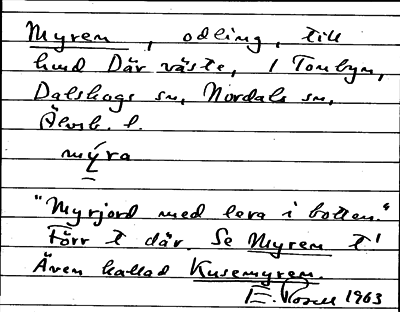 Myren, odling, till
hmd Där väste, i Tombyn,
Dalskogs sn, Nordals sn,
Älvsb. l.
mýra
"Myrjord med lera i botten."
Förr t där. Se Myren t'
Även kallad Kusemyren.
E. Rosell 1963